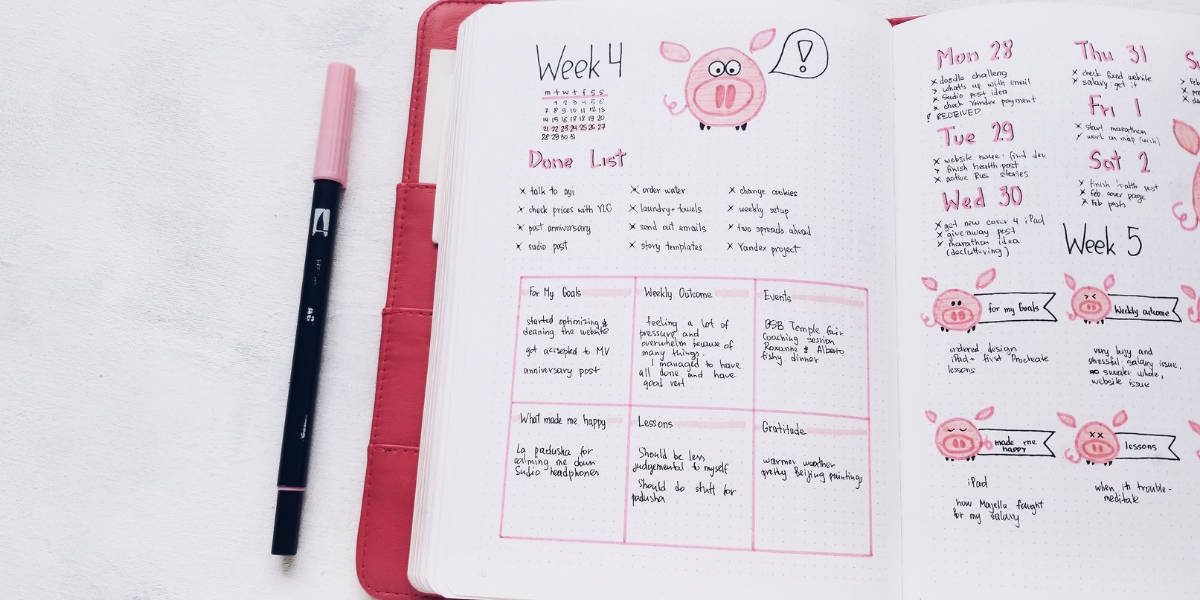 Week 4
!
m t w t f s s
1 2 3 4 5 6
7 8 9 10 11 12 13
14 15 16 17 18 19 20
21 22 23 24 25 26 27
28 29 30 31
Done List
x talk to
x check prices with YLC
x post anniversary
x sudio post
x order water
x laundry + towels
x send out emails
x story templates
x change cookies
x weekly setup
x two spreads ahead
x Yandex project
For My Goals
started optimizing &
cleaning the website
got accsepted to MV
anniversary post
Weekly Outcome
feeling a lot of
pressure and
overwhelm because of
many things.
I managed to have
all done and have
goal
Events
BSB Temple Fair
Coaching session
Roxanne & Alberto
fishy dinner
What made me happy
La padusha for
calming me down
Sudio headphones
Lessons
Should be less
judgemental to myself
Should do stuff for
padusha
Gratitude
warmer weather
pretty Beijing paintings
Mon 28
x doodle challeng
> what's up with email
x sudio post idea
x check Yandex payment
! RECEIVED
Tue 29
x website move: find dev
> finish health post
x active Rus stories
Wed 30
x get new cover 4 iPad
x giveaway post
x marathon idea
(decluttering)
Thu 31
x check fixed website
x salary get it
Fri 1
x start marathon
x work on map (wish)
Sat 2
x finish health post
x Feb cover page
x Feb posts
Week 5
for my Goals
ordered design
iPad - first Procreate
lessons
Weekly outcome
very busy and
stressful: salary issue,
whole,
website issue
made me
happy
iPad
how Majella fought
for my salary
lessons
when in trouble -
meditate